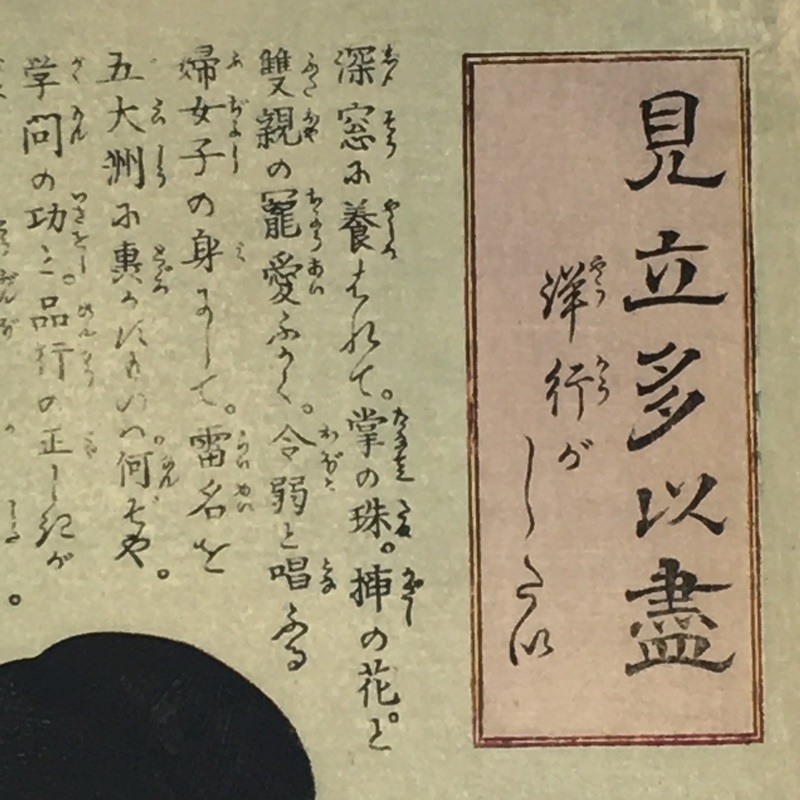 見立多以盡
洋行がしたい
深窓に養はれて。掌の珠。挿の花と
雙親の寵愛ふかく。令弱と唱ふる
婦女子の身にして。雷名を
五大洲に轟かすものハ何ぞや。
学問の功と。品行の正しきが